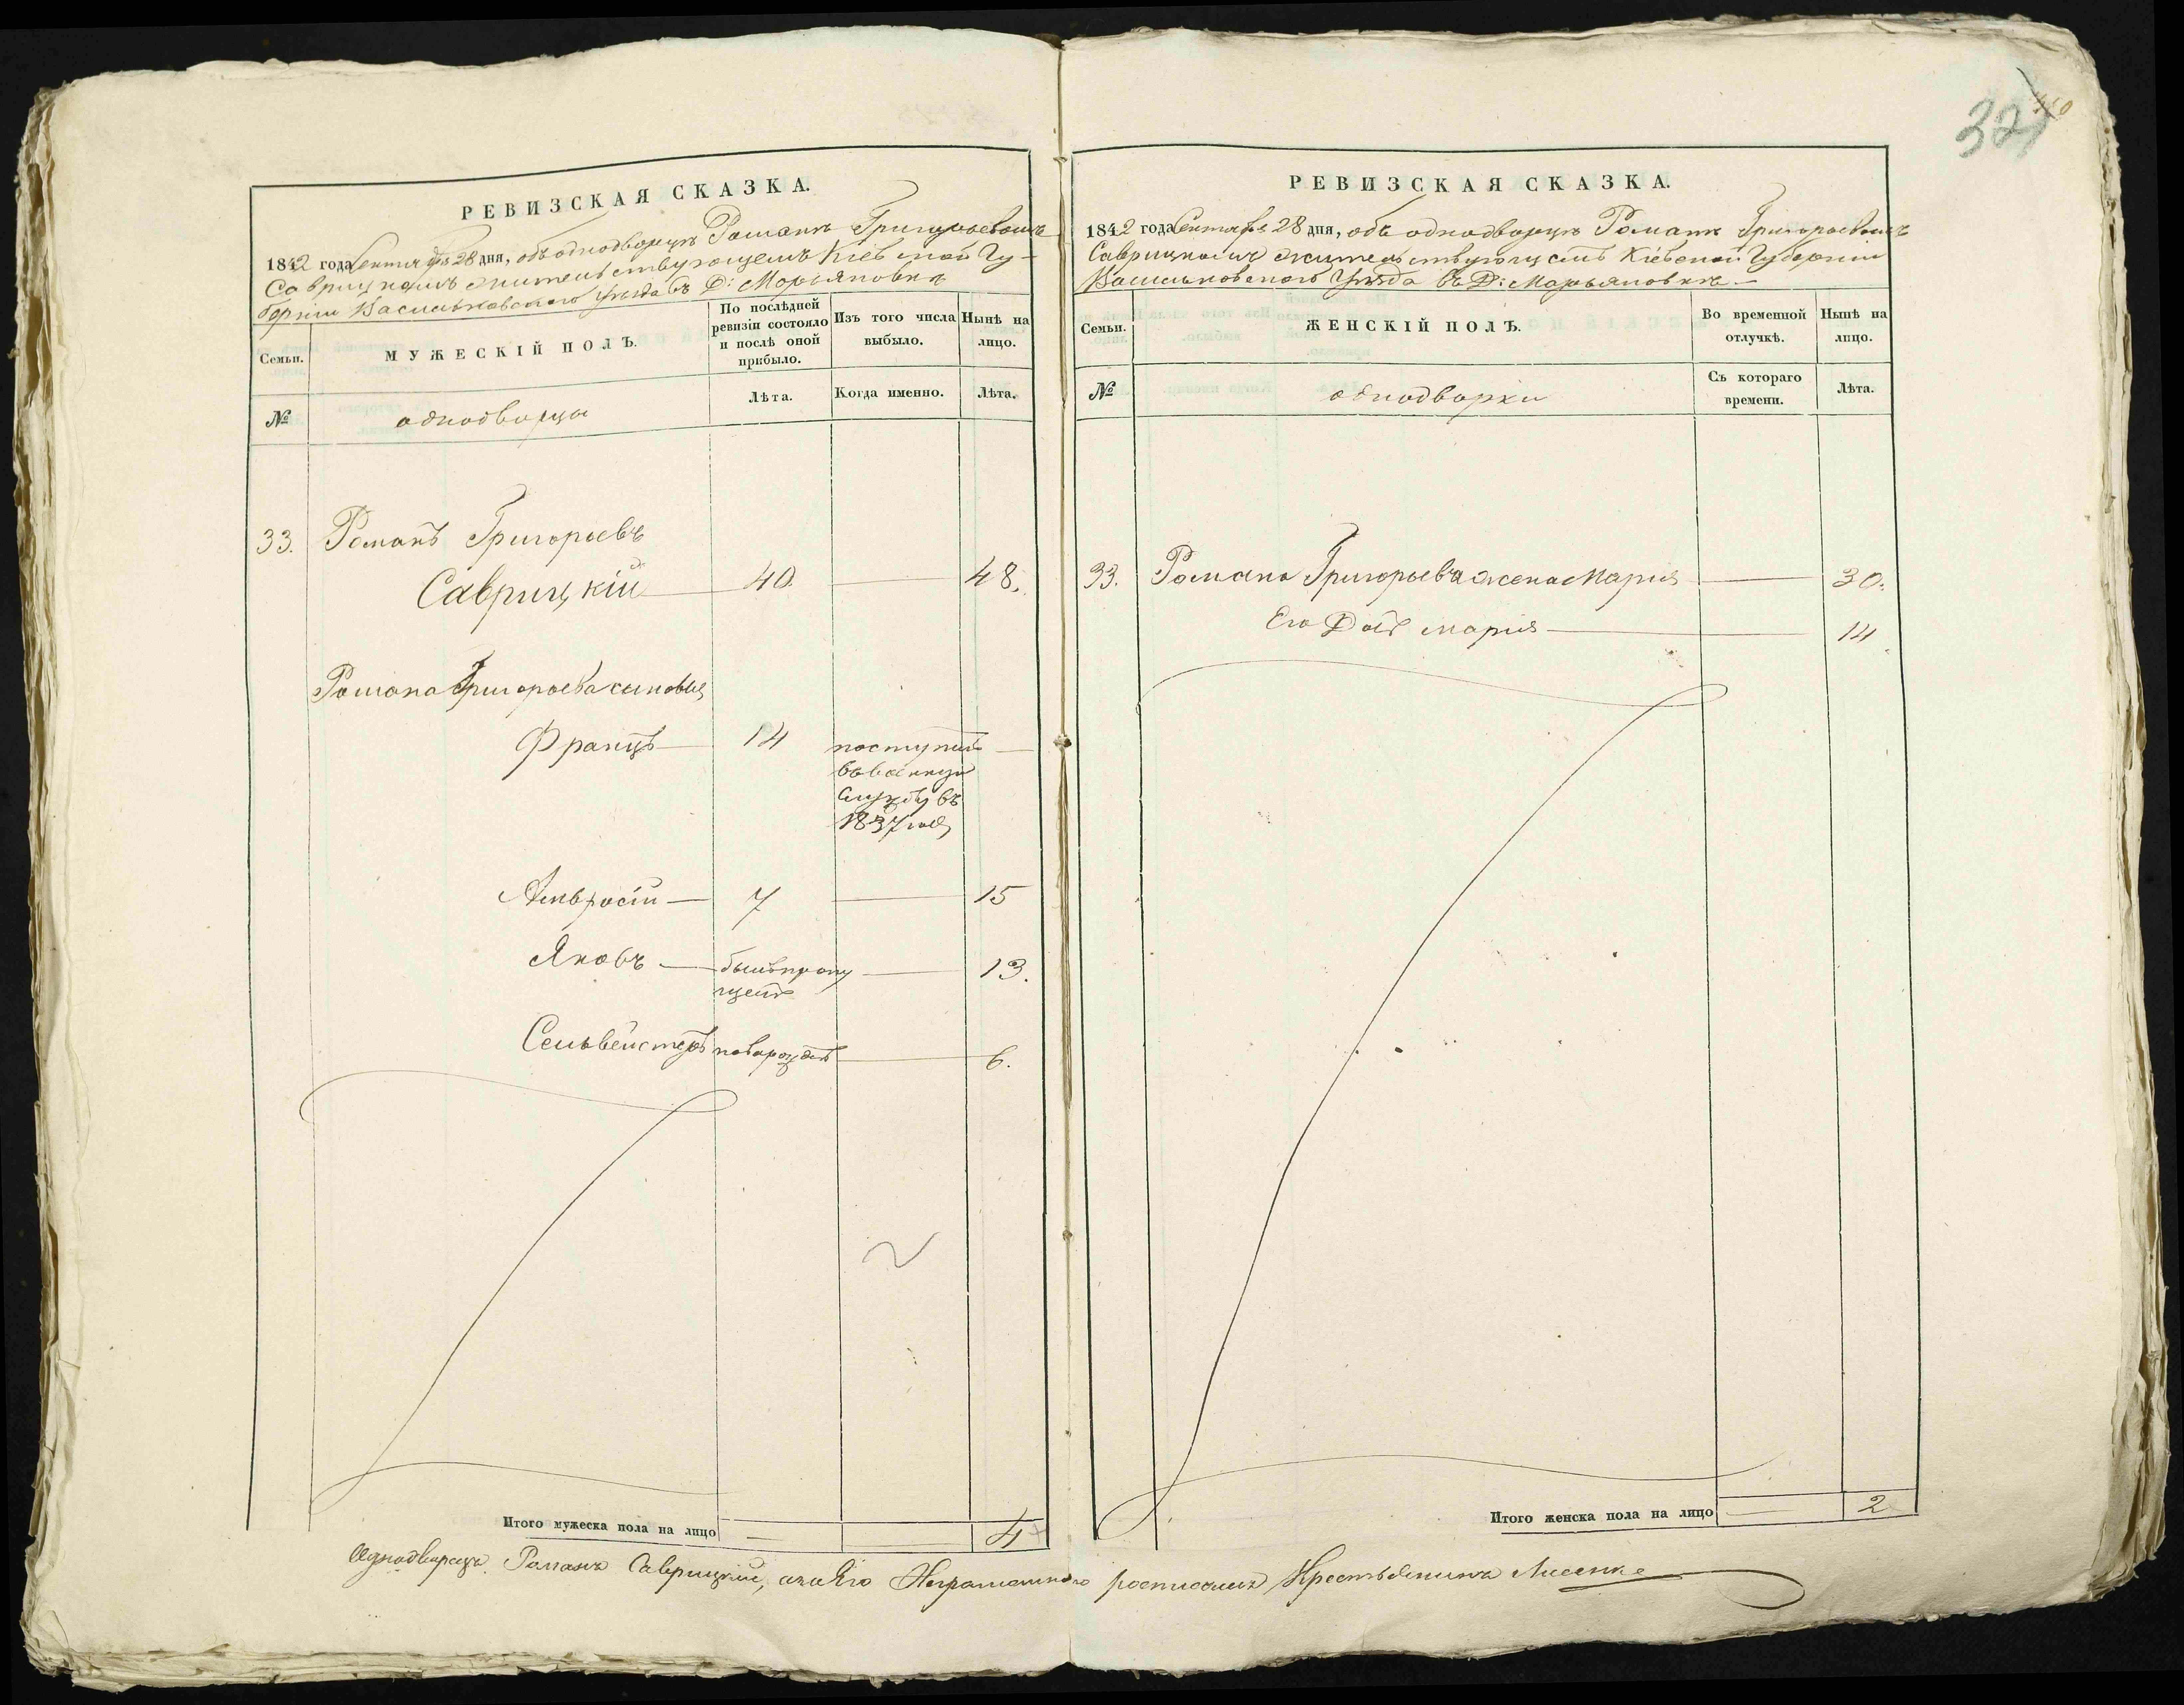 РЕВИЗСКАЯ СКАЗКА.
1842 года Сентября 28 дня, объ однодворцѣ Романѣ Григорьевомъ
Саврицкомъ жительствующемъ Кіевской Гу-
берніи Васильковского Уѣзда въ Д: Марьяновкѣ
Семьи.
МУЖЕСКІЙ ПОЛЪ.
По послѣдней
ревизіи состояло
и послѣ оной
прибыло.
Изъ того числа
выбыло.
Нынѣ на
лицо.
№
однодворцы
Лѣта.
Когда именно.
Лѣта.
33. Романъ Григорьевъ
Саврицкій 40. 48.
Романа Григорьева сыновья
Францъ 14 поступилъ
въ военную
службу въ
1837 году
Амвросій 7 15
Яковъ былъ пропу 13.
щенъ
Сельвейстеръ новорожден 6.
Итого мужеска пола на лицо 4
32
РЕВИЗСКАЯ СКАЗКА.
1842 года Сентября 28 дня, объ однодворцѣ Романѣ Григорьевомъ
Саврицкомъ жительствующемъ Кіевской Губерніи
Васильковского Уѣзда въ Д: Марьяновкѣ
Семьи.
ЖЕНСКІЙ ПОЛЪ.
Во временной
отлучкѣ.
Нынѣ на
лицо.
№
однодворки
Съ котораго
времени.
Лѣта.
33. Романа Григорьева жена Марія 30.
Его Доч Марія 14
Итого женска пола на лицо 2
Однодворецъ Романъ Саврицкій, а за Его Неграмотного росписался Крестьянинъ Лисенко